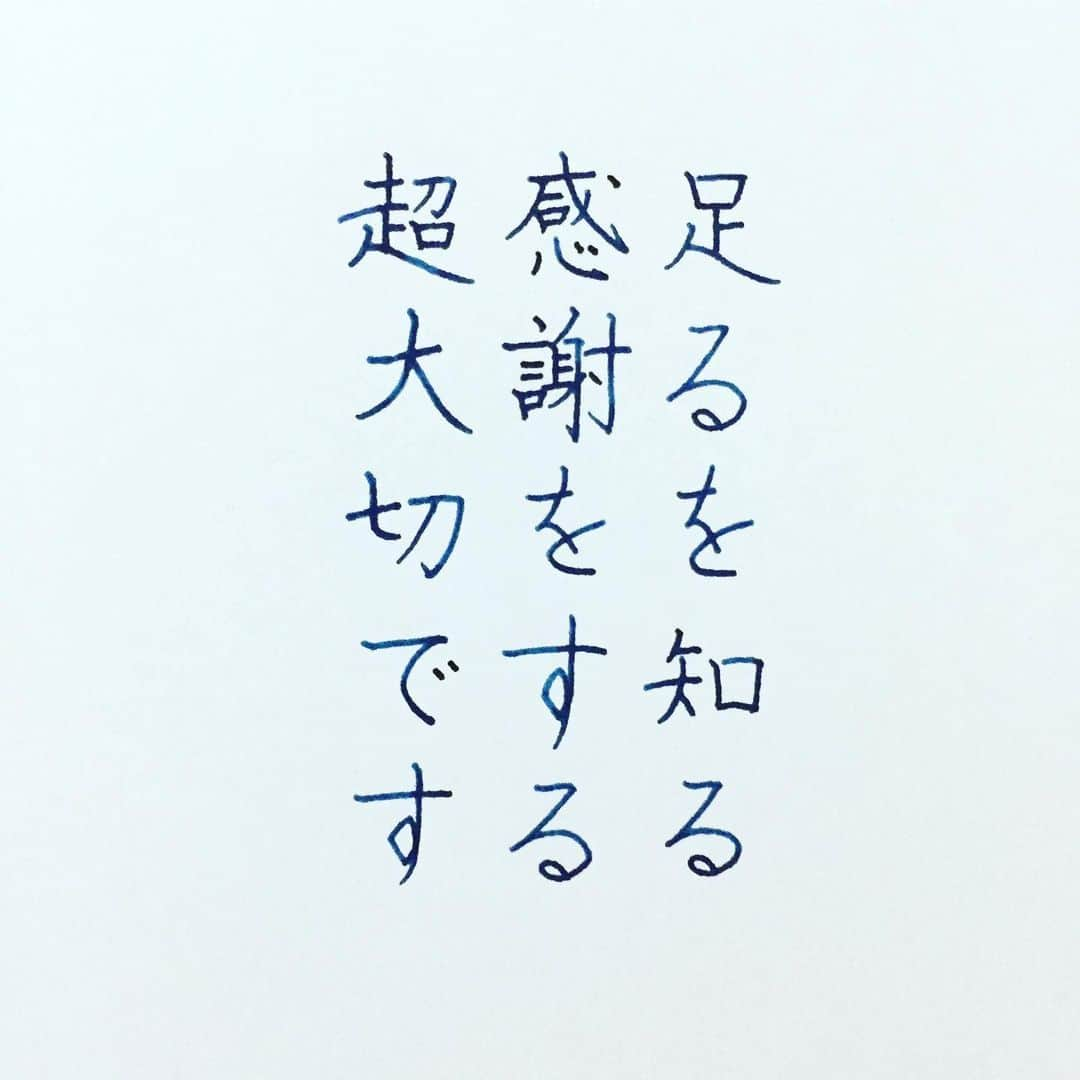 足るを知る
感謝をする
超大切です